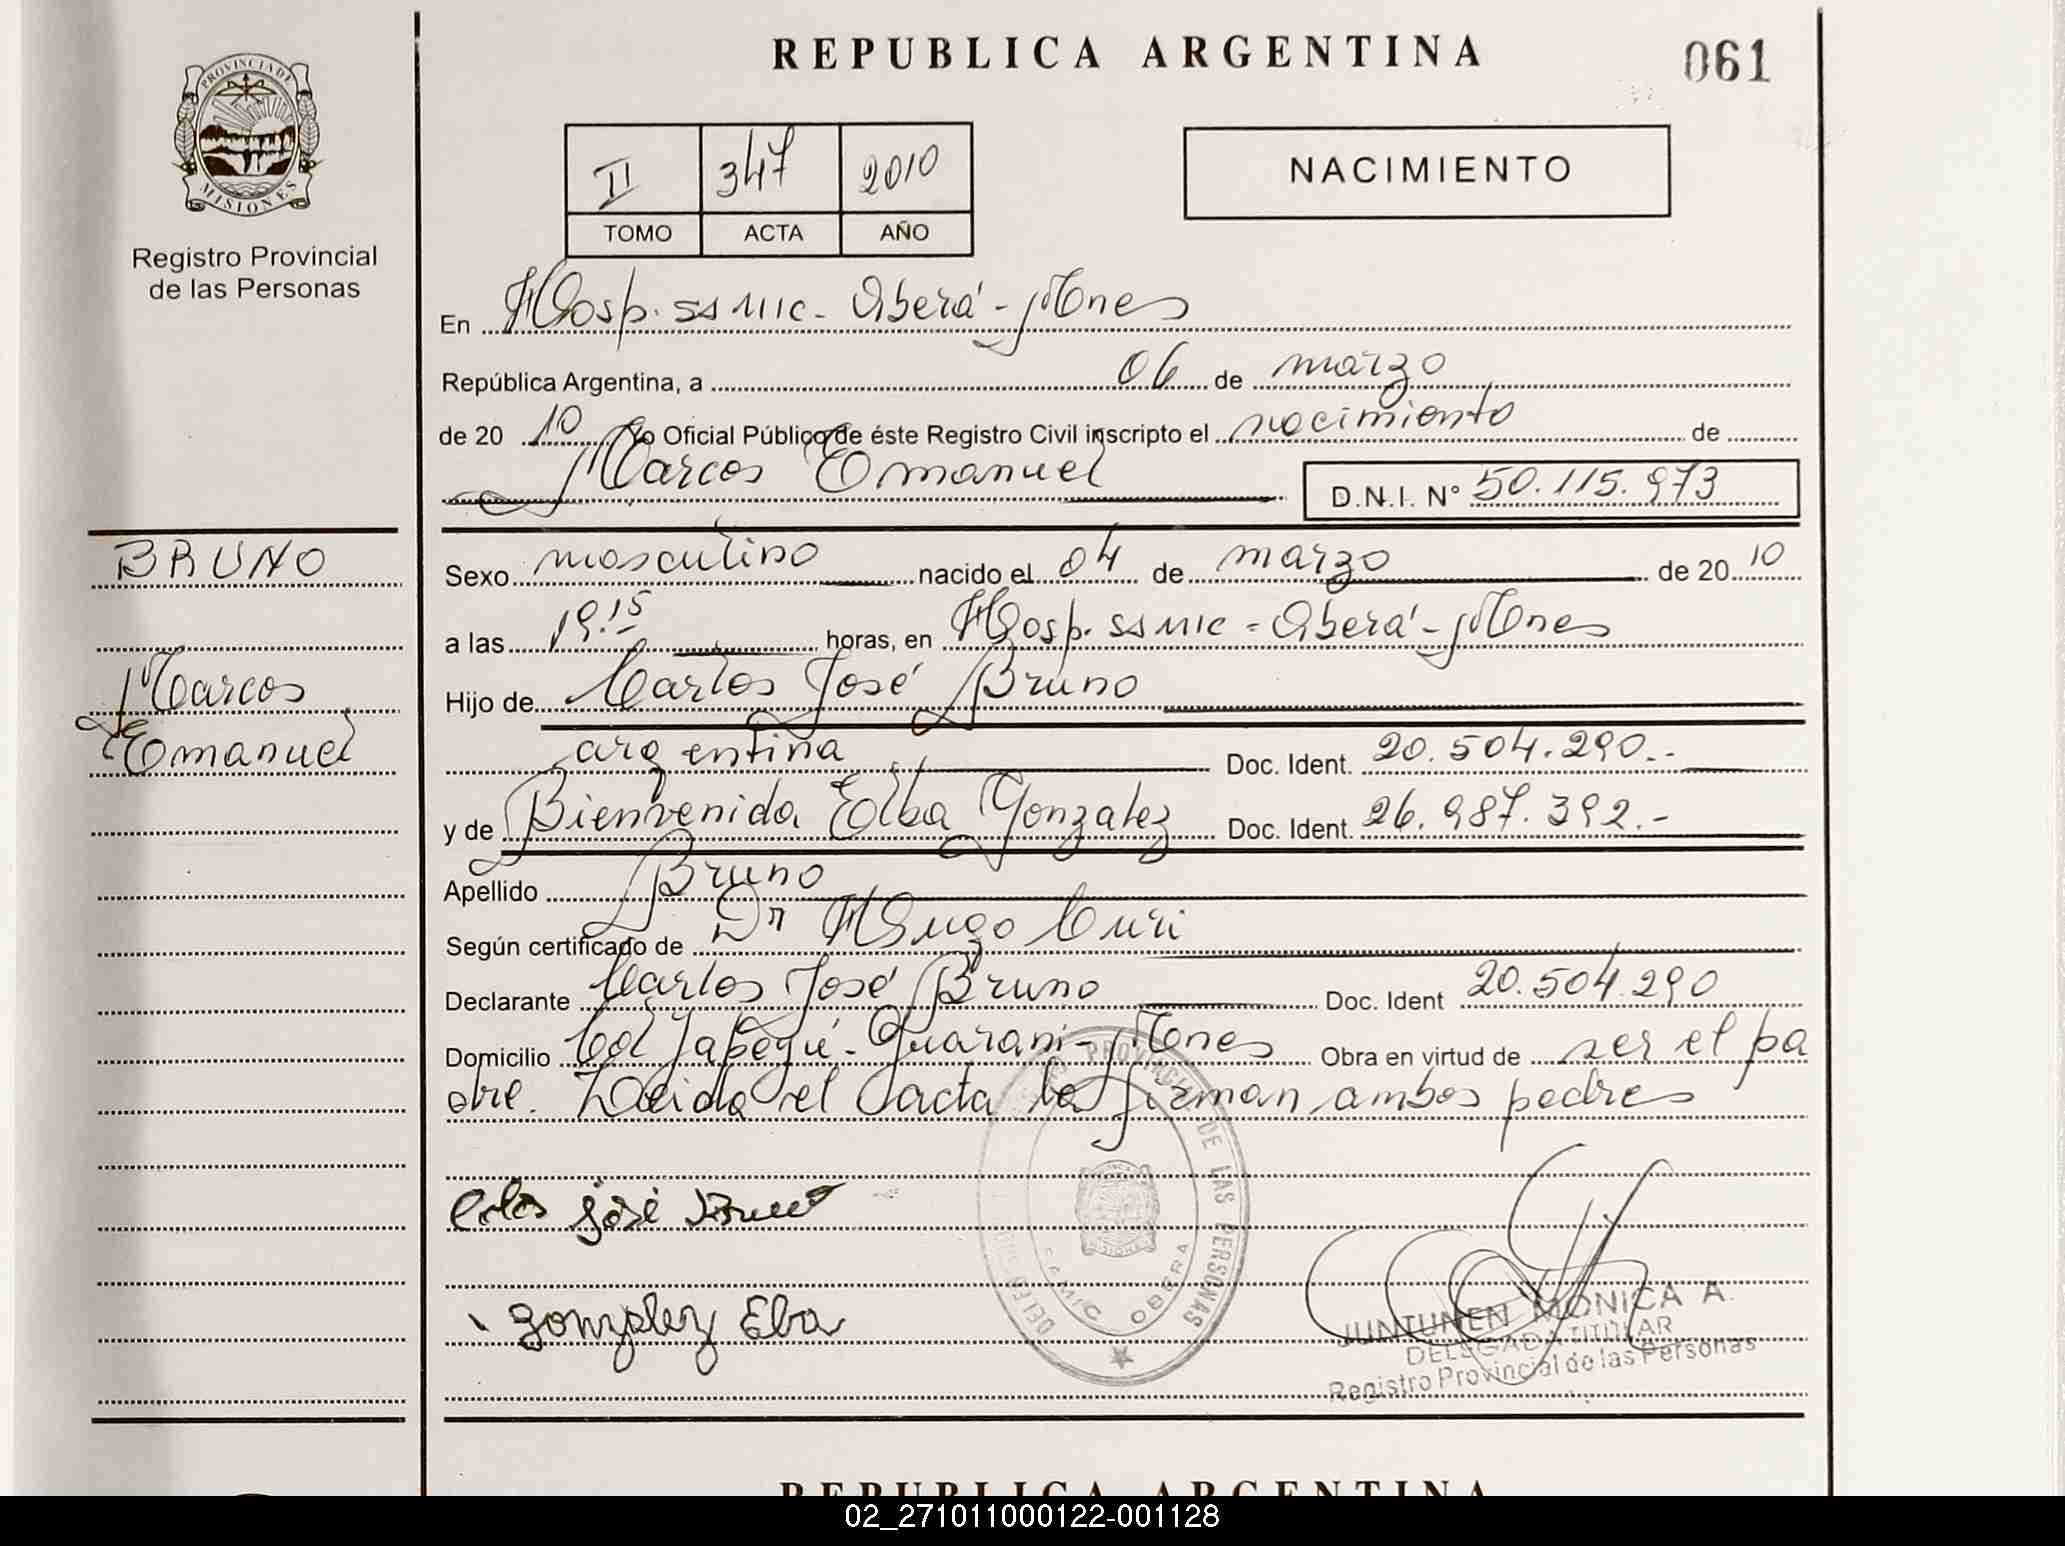 REPUBLICA ARGENTINA
061
PROVINCIA DE MISIONES
Registro Provincial
de las Personas
II 347 2010
TOMO ACTA AÑO
NACIMIENTO
En Hosp. SSMIC - Oberá - Mnes
República Argentina, a 06 de marzo
de 20 10 Yo Oficial Público de éste Registro Civil inscripto el nacimiento de
Marcos Emanuel
D.N.I. N° 50.115.973
BRUNO
Marcos
Emanuel
Sexo masculino nacido el 04 de marzo de 20 10
a las 19.15 horas, en Hosp. SSMIC - Oberá - Mnes
Hijo de Carlos José Bruno
argentina Doc. Ident. 20.504.290.-
y de Bienvenida Elba Gonzalez Doc. Ident. 26.987.392.-
Apellido Bruno
Según certificado de Dr Hugo Curi
Declarante Carlos José Bruno Doc. Ident 20.504.290
Domicilio Col Japeyú - Guarani - Mnes Obra en virtud de ser el pa
dre. Leida el acta la firman ambos padres
José
Gonzalez Elba
PROVINCIAL DE LAS PERSONAS
SAMIC OBERA
JUNTUNEN MONICA A.
DELEGADA TITULAR
Registro Provincial de las Personas
REPUBLICA ARGENTINA
02_271011000122-001128